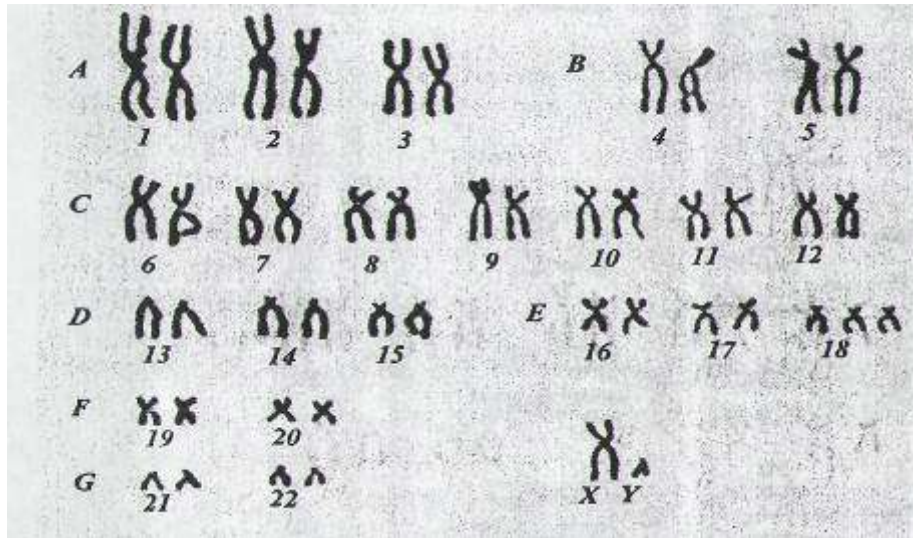 A 1 2 3 B 4 5
C 6 7 8 9 10 11 12
D 13 14 15 E 16 17 18
F 19 20
G 21 22 X Y